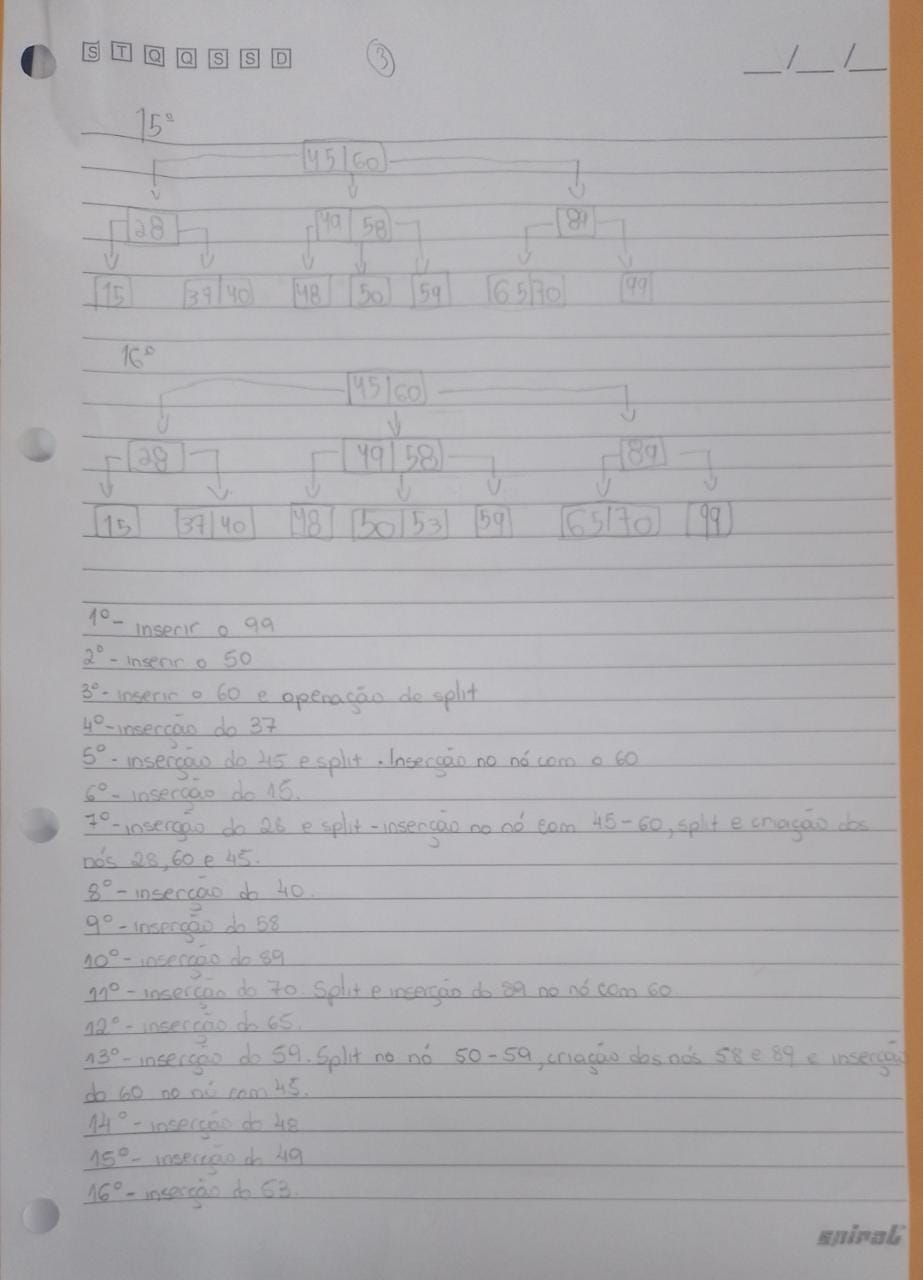 S T Q Q S S D 3 __/__/__
15º
45|60
28 49|58 89
15 37|40 48 50 59 65|70 99
16º
45|60
28 49|58 89
15 37|40 48 50|53 59 65|70 99
1º- inserir o 99
2º- inserir o 50
3º- inserir o 60 e operação de split
4º-inserção do 37
5º- inserção do 45 e split. Inserção no nó com o 60
6º- inserção do 15.
7º-inserção do 28 e split-inserção no nó com 45-60, split e criação dos
nós 28, 60 e 45.
8º- inserção do 40.
9º- inserção do 58
10º- inserção do 89
11º- inserção do 70. Split e inserção do 89 no nó com 60.
12º- inserção do 65.
13º- inserção do 59. Split no nó 50-59, criação dos nós 58 e 89 e inserção
do 60 no nó com 45.
14º- inserção do 48
15º- inserção do 49
16º- inserção do 53.
spiral